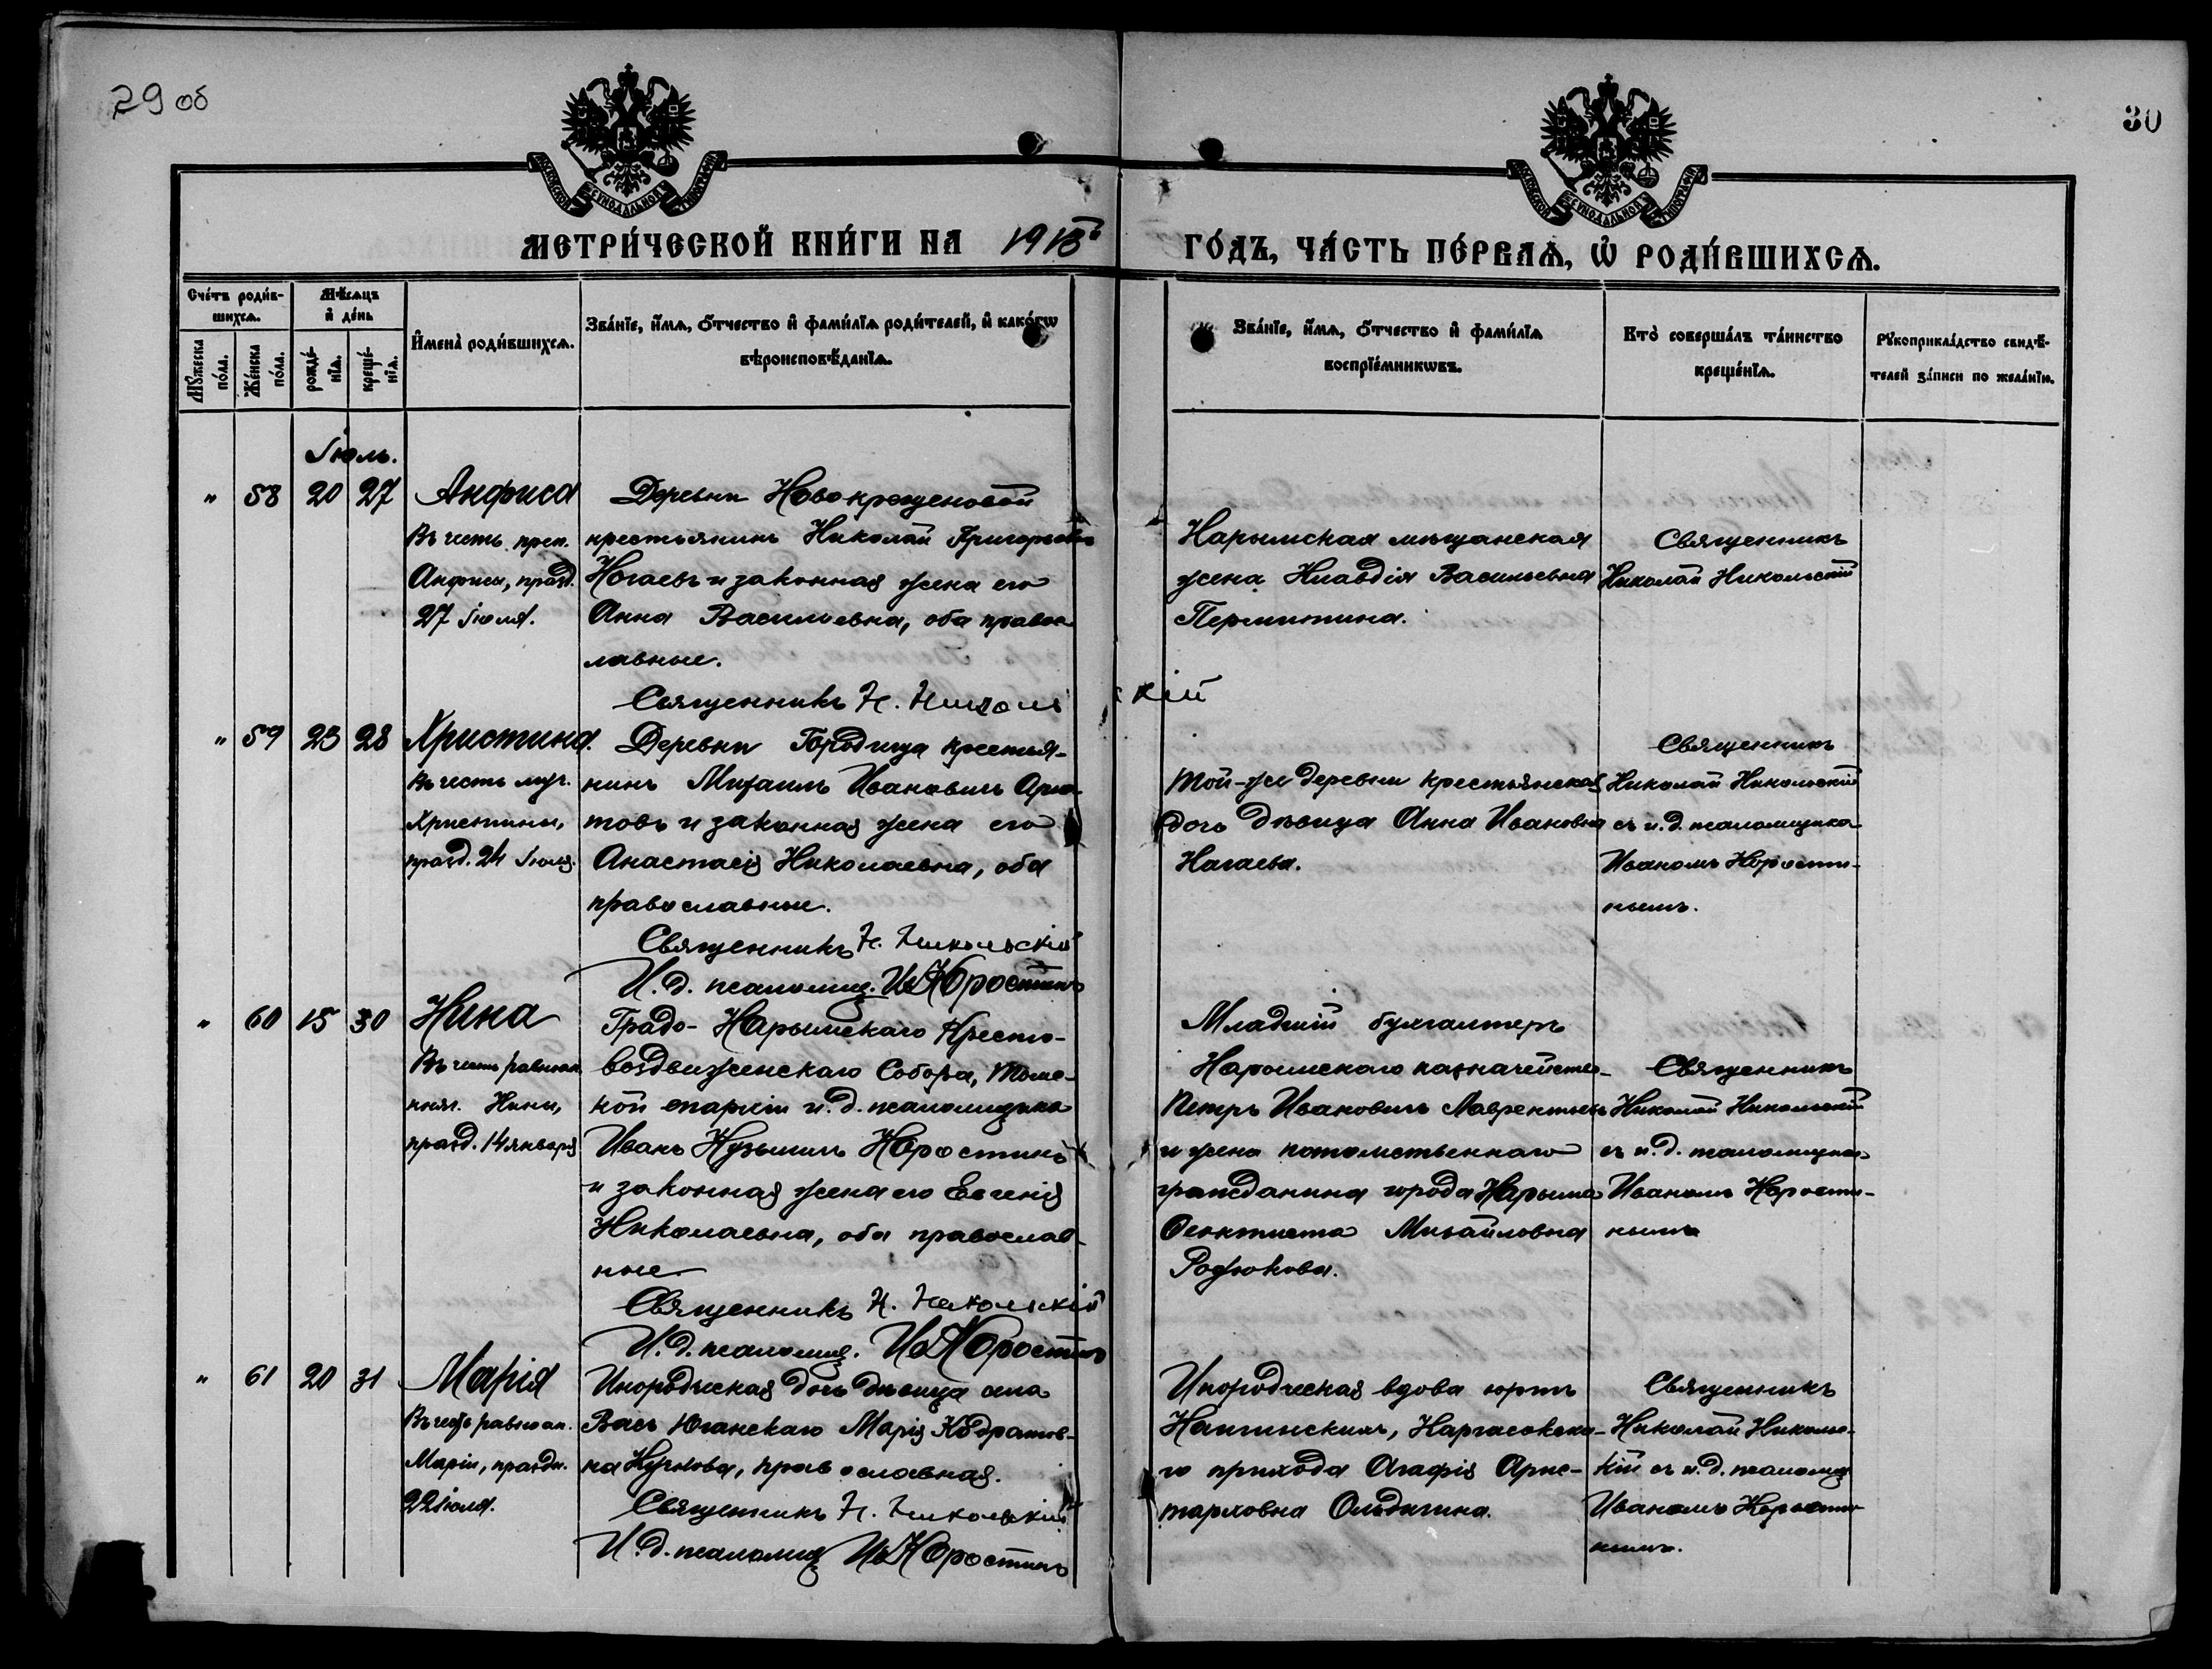 29 об
30
МЕТРИ́ЧЕСКОЙ КНИ́ГИ НА 1918
ГО́ДЪ, ЧА́СТЬ ПЕ́РВАѦ, Ѡ҆ РОДИ́ВШИХСѦ.
Сче́тъ роди́в-
шихсѧ.
Мѣ́сѧцъ
и҆ де́нь
Мꙋ́жеска
по́ла.
Же́нска
по́ла.
рожде́-
нїѧ.
креще́-
нїѧ.
И҆мена̀ роди́вшихсѧ.
Зва́нїе, и҆́мѧ, ѻ҆́тчество и҆ фами́лїѧ роди́телей, и҆ како́гѡ
вѣроисповѣ́данїѧ.
Зва́нїе, и҆́мѧ, ѻ҆́тчество и҆ фами́лїѧ
воспрїе́мникѡвъ.
Кто̀ соверша́лъ та́инство
креще́нїѧ.
Рꙋкоприкла́дство свидѣ́-
телей за́писи по жела́нїю.
Іюль.
" 58 20 27 Анфиса
Въ честь преп.
Анфисы, празд.
27 Іюля.
Деревни Новокрещеновой
крестьянинъ Николай Григорьевъ
Ногаевъ и законная жена его
Анна Васильевна, оба правос-
лавные.
Священникъ Н. Никольскій
Нарымская мѣщанская
жена Клавдія Васильевна
Пермитина.
Священникъ
Николай Никольскій
" 59 23 28 Христина.
Въ честь муч.
Христины,
празд. 24 Іюля.
Деревни Городища крестья-
нинъ Михаилъ Ивановичъ
товъ и законная жена его
Анастасія Николаевна, оба
православные.
Священникъ Н. Никольскій
И. д. псаломщ. Ив Коростинъ
Той-же деревни крестьянская
дочь дѣвица Анна Ивановна
Нагаева.
Священникъ
Николай Никольскій
съ и. д. псаломщика
Иваномъ Корости-
нымъ.
" 60 15 30 Нина
Въ честь равноап.
княг. Нины,
празд. 14 января
Градо-Нарымскаго Кресто-
воздвиженскаго Собора, Томс-
кой епархіи и. д. псаломщика
Иванъ Кузьмичъ Коростинъ
и законная жена его Евгенія
Николаевна, оба православ-
ные
Священникъ Н. Никольскій
И. д. псаломщ. Ив Коростинъ
Младшій бухгалтеръ
Нарымскаго казначейства
Петръ Ивановичъ Лаврентьевъ
и жена потомственнаго
гражданина города Нарыма
Феоктиста Михайловна
Родюкова.
Священникъ
Николай Никольскій
съ и. д. псаломщика
Иваномъ Корости-
нымъ
" 61 20 31 Марія
Въ честь равноап.
Маріи, праздн.
22 Іюля.
Инородческая дочь дѣвица села
Васъ Юганскаго Марія Кодратов-
на, православная.
Священникъ Н. Никольскій
И. д. псаломщ Ив Коростинъ
Инородческая вдова юртъ
Наргасокска-
го прихода Агафія Арис-
тарховна Ольдигина.
Священникъ
Николай Николь-
кій съ и. д. псаломщ
Иваномъ Корости
нымъ.